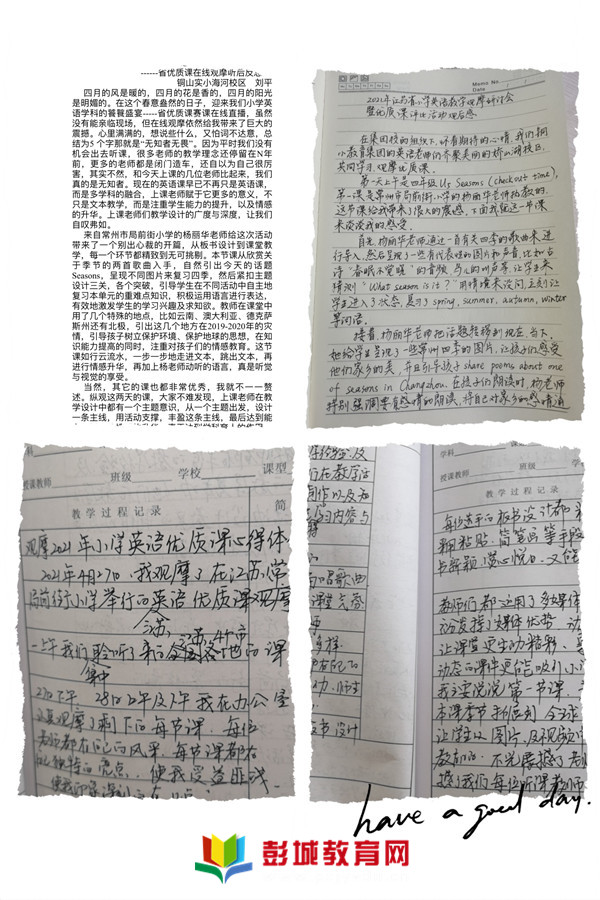 ------省优质课在线观摩听后反思
铜山实小海河校区 刘平
四月的风是暖的，四月的花是香的，四月的阳光
是明媚的。在这个春意盎然的日子，迎来我们小学英
语学科的饕餮盛宴-----省优质课赛课在线直播，虽然
没有能亲临现场，但在线观摩依然给我带来了巨大的
震撼。心里满满的，想说些什么，又怕词不达意，总
结为5个字那就是“无知者无畏”。因为平时我们没有
机会出去听课，很多老师的教学理念还停留在N年
前，更多的老师都是闭门造车，还自以为自己很厉
害，其实不然，和今天上课的几位老师比起来，我们
真的是无知者。现在的英语课早已不再只是英语课，
而是多学科的融合，上课老师赋于它更多的意义，不
只是文本教学，而是注重学生能力的提升，以及情感
的升华。上课老师们教学设计的广度与深度，让我们
自叹弗如。
来自常州市局前街小学的杨丽华老师给这次活动
带来了一个别出心裁的开篇，从板书设计到课堂教
学，每一个环节都精致到无可挑剔。本节课从欣赏关
于季节的两首歌曲入手，自然引出今天的话题
Seasons，呈现不同图片来复习四季，然后紧扣主题
设计三关，各个突破，引导学生在不同活动中自主地
复习本单元的重难点知识，积极运用语言进行表达，
有效地激发学生的学习兴趣及求知欲，教师在课堂中
用了几个特殊的地点，比如云南、澳大利亚、德克萨
斯州还有北极，引出这几个地方在2019-2020年的灾
情，引导孩子树立保护环境、保护地球的思想，在知
识能力提高的同时，注重对孩子们的情感教育。这节
课如行云流水，一步一步地走进文本，跳出文本，再
进行情感升华，再加上杨老师动听的语言，真是听觉
与视觉的享受。
当然，其它的课也都非常优秀，我就不一一赘
述。纵观这两天的课，大家不难发现，上课老师在教
学设计中都有一个主题意识，从一个主题出发，设计
一条主线，用活动支撑，丰盈这条主线，最后达到能
Memo No.
Date
2021年江苏省小学英语教学观摩研讨会
暨优质课评比活动观后感
在集团校的组织下，怀着期待的心情，我们铜
小教育集团的英语老师们齐聚美丽的娇山湖校区，
共同学习、观摩优质课。
第一天上午是四年级U5 Seasons (check out time),
第一课是常州市局前街小学的杨丽华老师执教的，
这节课给我带来了很大的震感，下面我就这一节课
来谈谈我的感受。
首先，杨丽华老师通过一首有关四季的歌曲来进
行导入，然后呈现了一些有代表性的图片和声音，比如古
诗“春眠不觉晓”的音频、鸟儿的叫声等，让学生来
猜测“What season is it？”用情境来设问，立刻让
学生进入了状态，复习了spring, summer, autumn, winter
等词语。
接着，杨丽华老师把话题转移到现在、当下，
她给学生呈现了一些常州四季的图片，让孩子们感受
他们家乡的美，并且引导孩子share poems about one
of seasons in Changzhou. 在孩子们朗读时，杨老师
特别强调要有感情的朗读，将自己对家乡的感情通
授课教师 班级 学校 课型
教学过程记录 简
观摩2021年小学英语优质课心得体
2021年4月27日，我观摩了在江苏常
局前街小学举行的英语优质课观摩
一上午我们聆听了来的全国各地的课
27日下午 28日上午及下午我在办公室
认真观摩了剩下的每节课，每位
老师都有自己的风采，每节课都有
的独特的亮点，使我受益匪浅
学科
授课教师 班级 学
教学过程记录
每位选手的板书设计都
粘贴、简笔画等手段
教师们都运用了多媒体
让课堂更生动精彩
动态的课件更能吸引
我主要说说第一节课，
让学生以图片，及视频
多样
书设计
have a good day.
彭城教育网